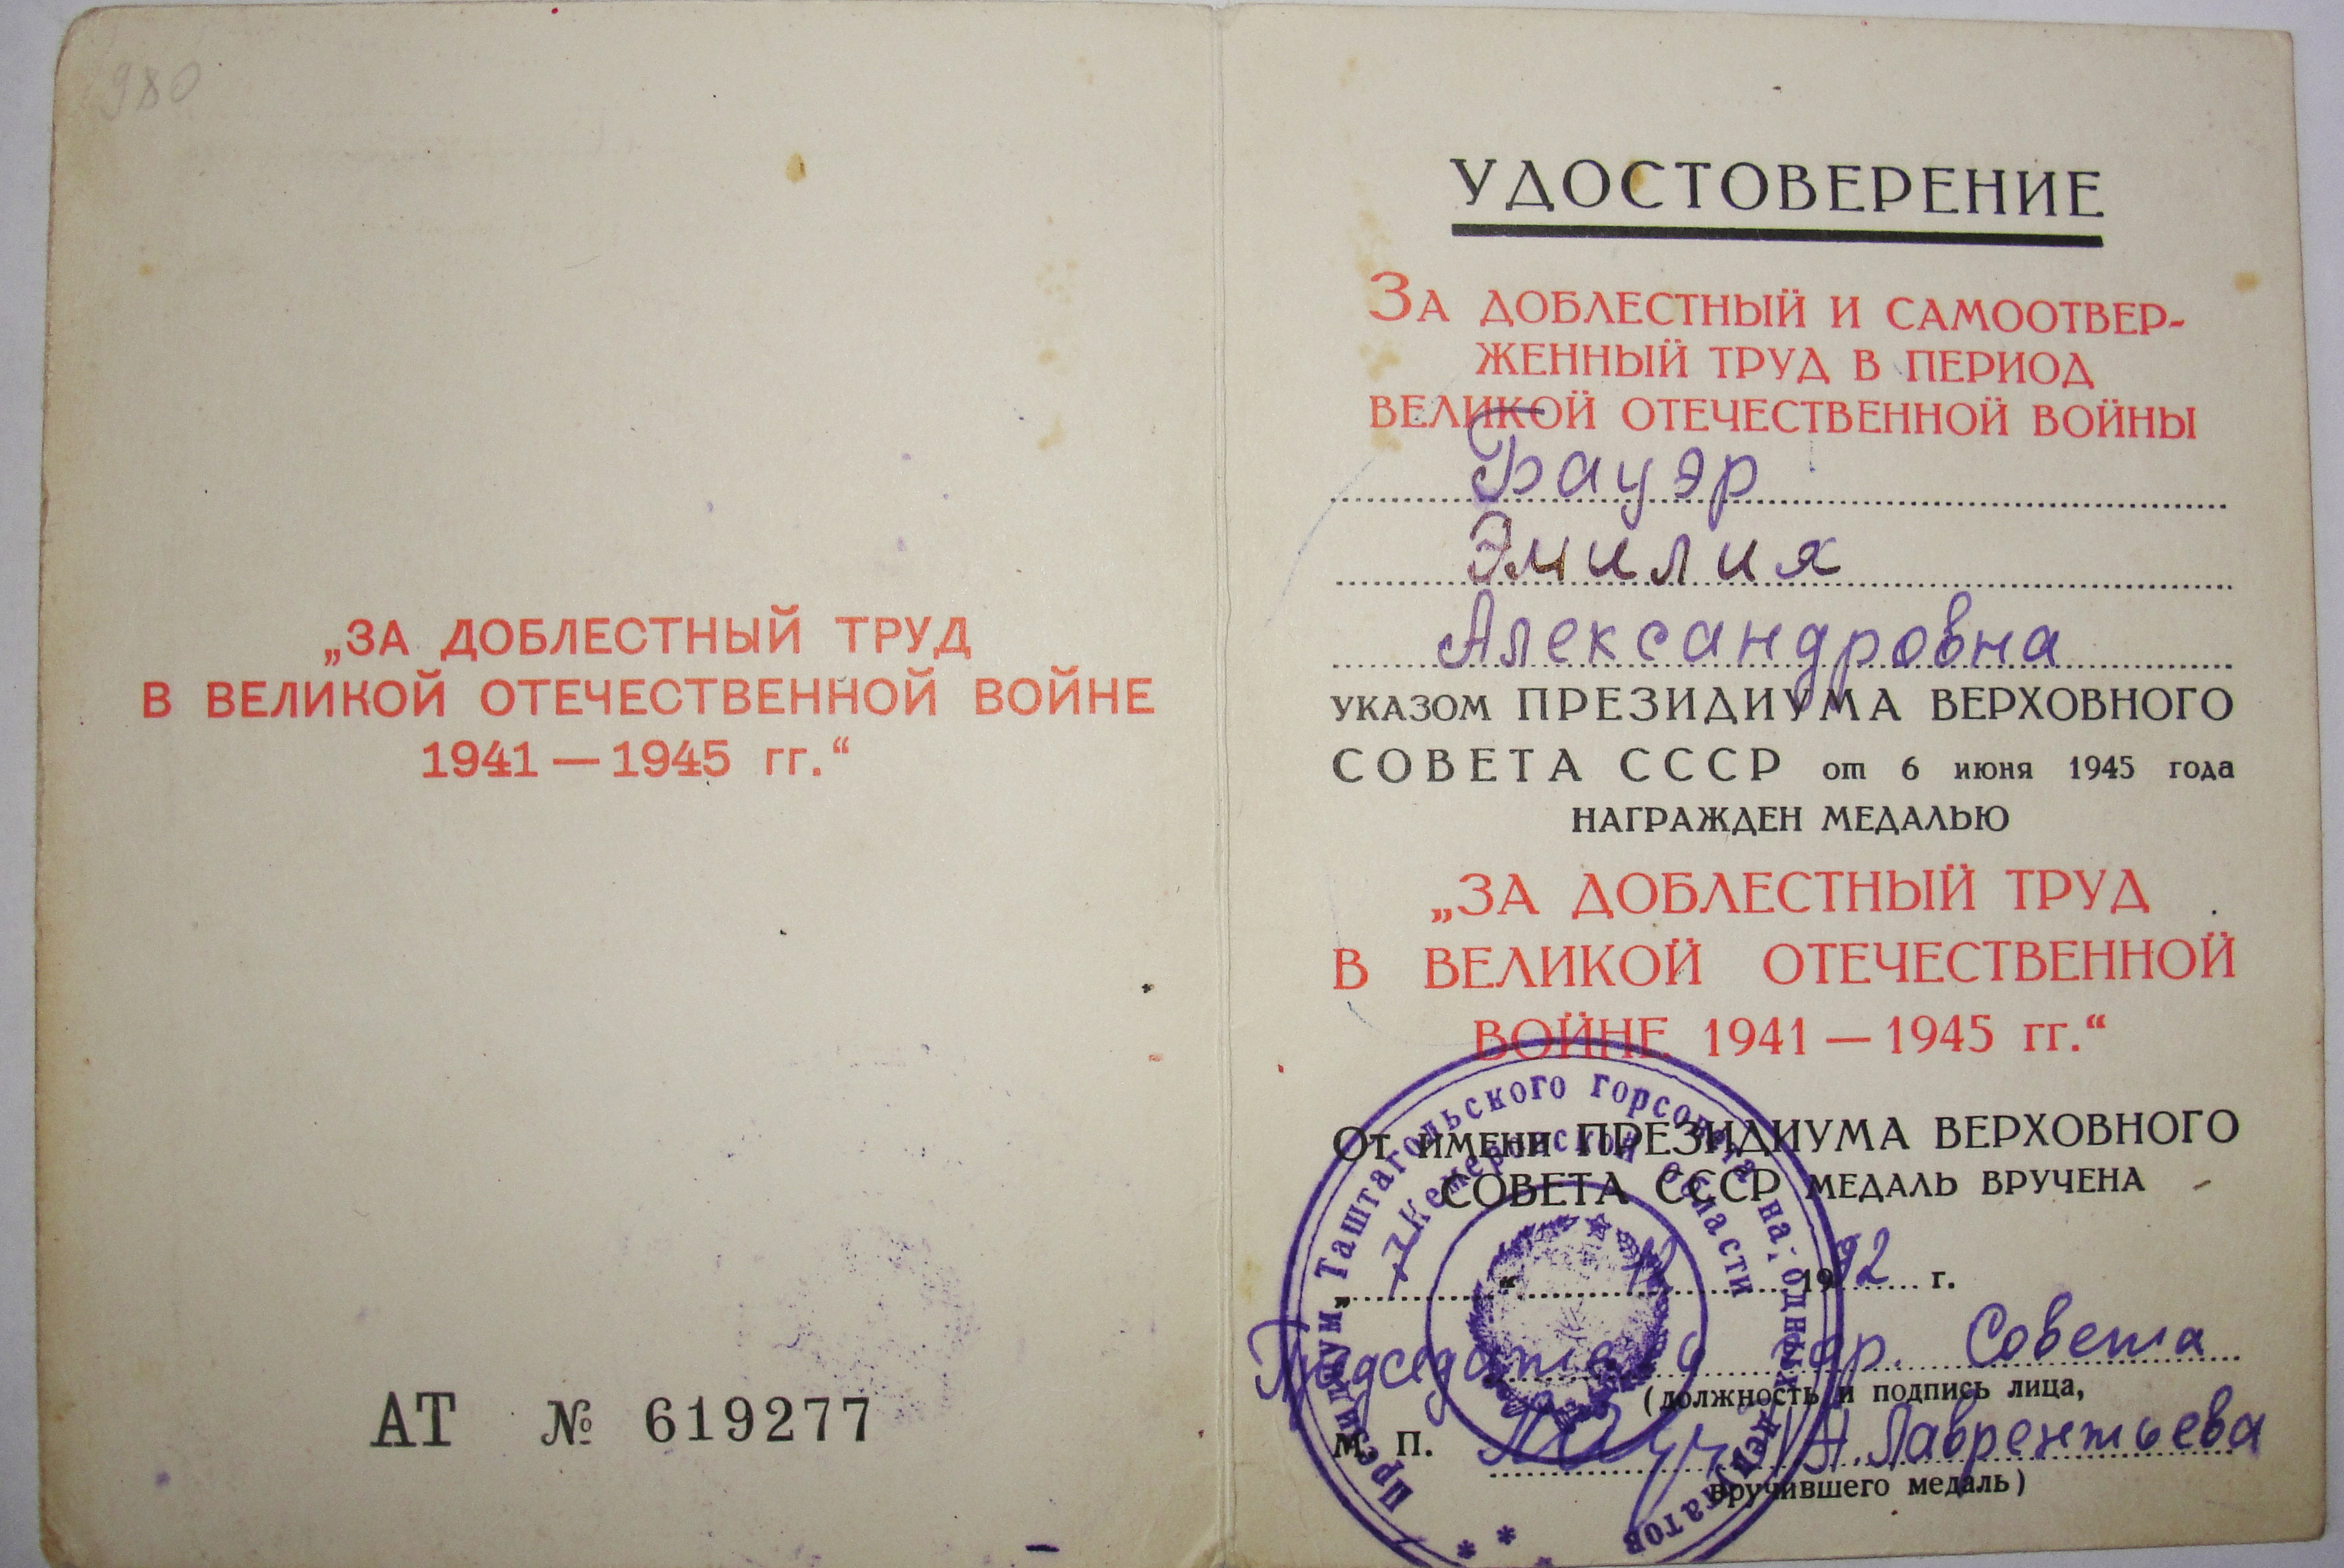 980
„ЗА ДОБЛЕСТНЫЙ ТРУД
В ВЕЛИКОЙ ОТЕЧЕСТВЕННОЙ ВОЙНЕ
1941 — 1945 гг.“
АТ № 619277
УДОСТОВЕРЕНИЕ
ЗА ДОБЛЕСТНЫЙ И САМООТВЕР-
ЖЕННЫЙ ТРУД В ПЕРИОД
ВЕЛИКОЙ ОТЕЧЕСТВЕННОЙ ВОЙНЫ
Бауэр
Эмилия
Александровна
УКАЗОМ ПРЕЗИДИУМА ВЕРХОВНОГО
СОВЕТА СССР от 6 июня 1945 года
НАГРАЖДЕН МЕДАЛЬЮ
„ЗА ДОБЛЕСТНЫЙ ТРУД
В ВЕЛИКОЙ ОТЕЧЕСТВЕННОЙ
ВОЙНЕ 1941 — 1945 гг.“
ОТ ИМЕНИ ПРЕЗИДИУМА ВЕРХОВНОГО
СОВЕТА СССР МЕДАЛЬ ВРУЧЕНА
„ 7 “ 12 1992 г.
Председатель гор. Совета
(должность и подпись лица,
М. П. Н. Лаврентьева
вручившего медаль)
Президиум Таштагольского горсовета народных депутатов
Кемеровской области